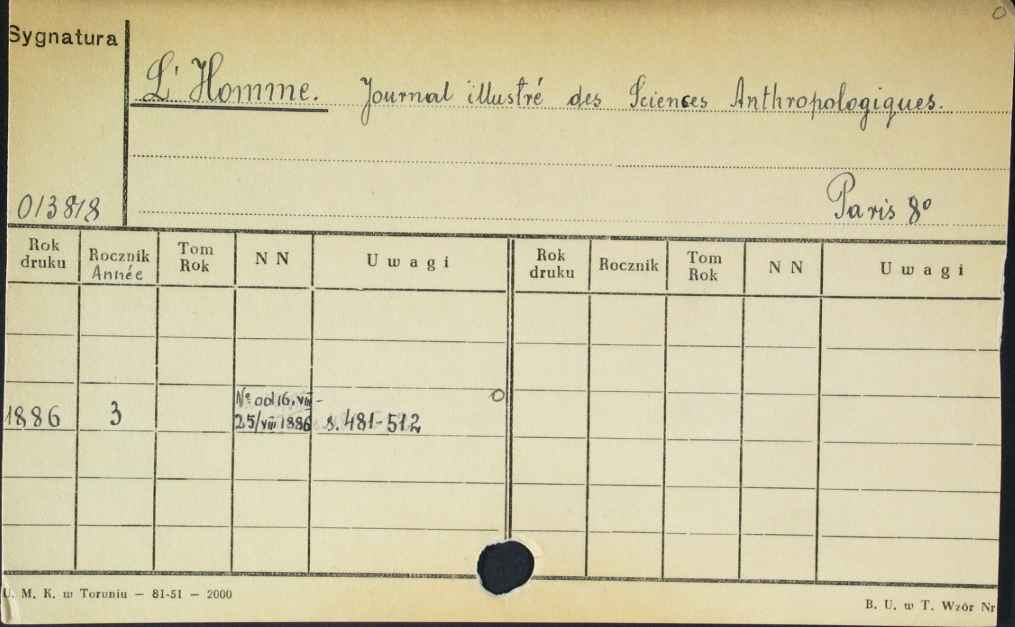 Sygnatura
L' Homme. Journal illustré des Sciences Anthropologiques.
013818
Paris 8°
Rok druku Rocznik Année Tom Rok N N Uwagi Rok druku Rocznik Tom Rok N N Uwagi
1886 3 Nº od 16.VIII-25/VIII 1886 s. 481-512
U. M. K. w Toruniu — 81-51 — 2000
B. U. w T. Wzór Nr